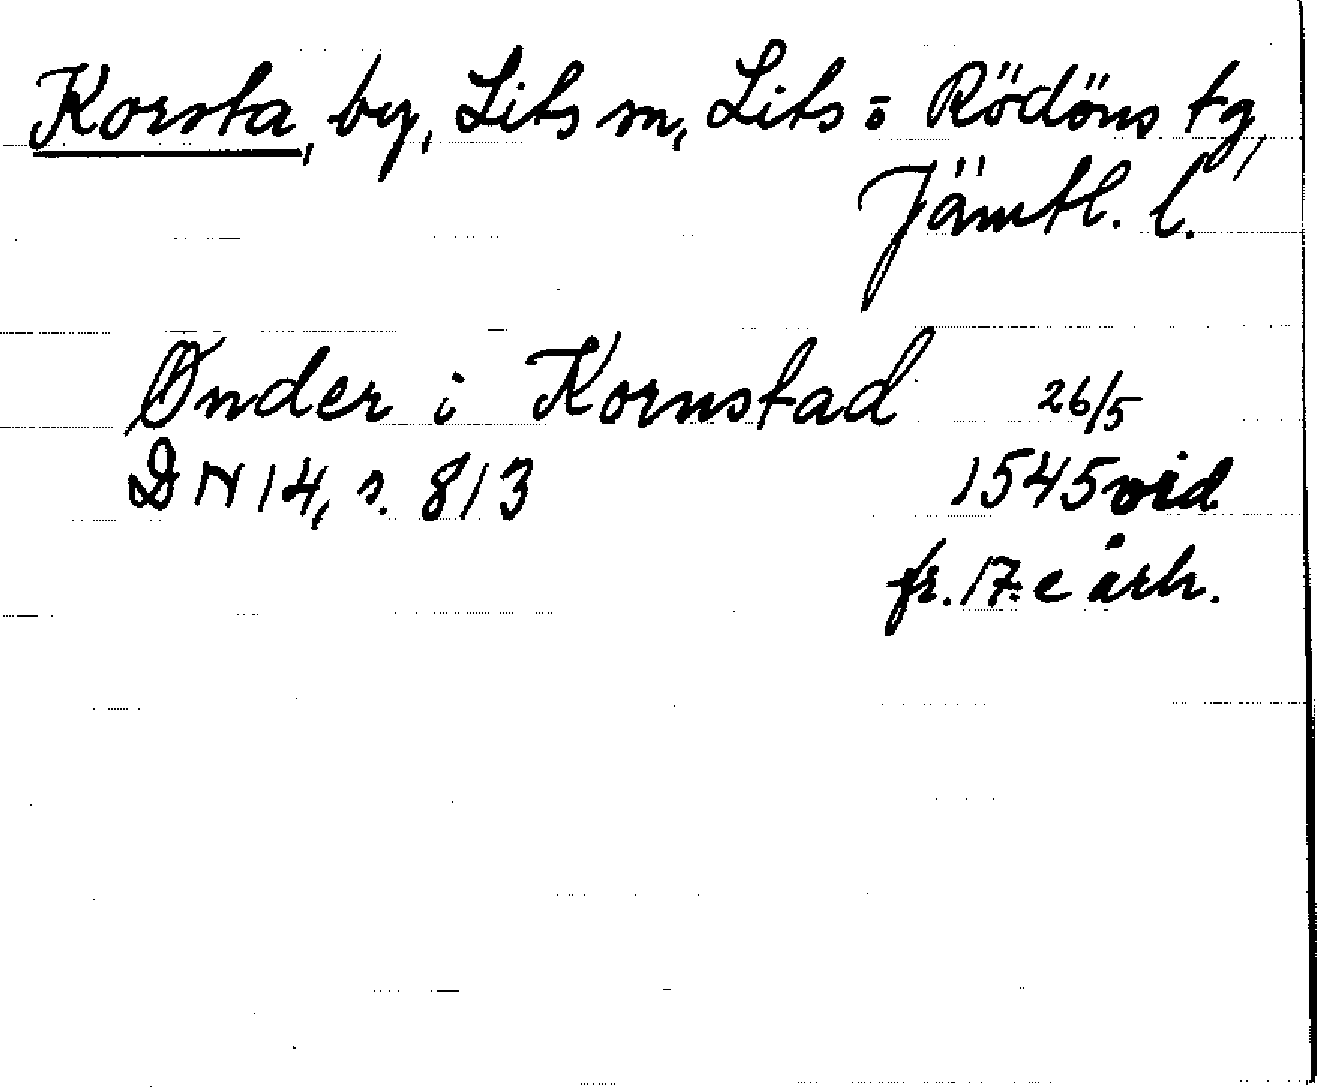 Korsta, by, Lits sn, Lits o Rödöns tg,
Jämtl. l.
Ønder i Kornstad 26/5
DN 14, s. 813 1545 vid.
fr. 17:e årh.